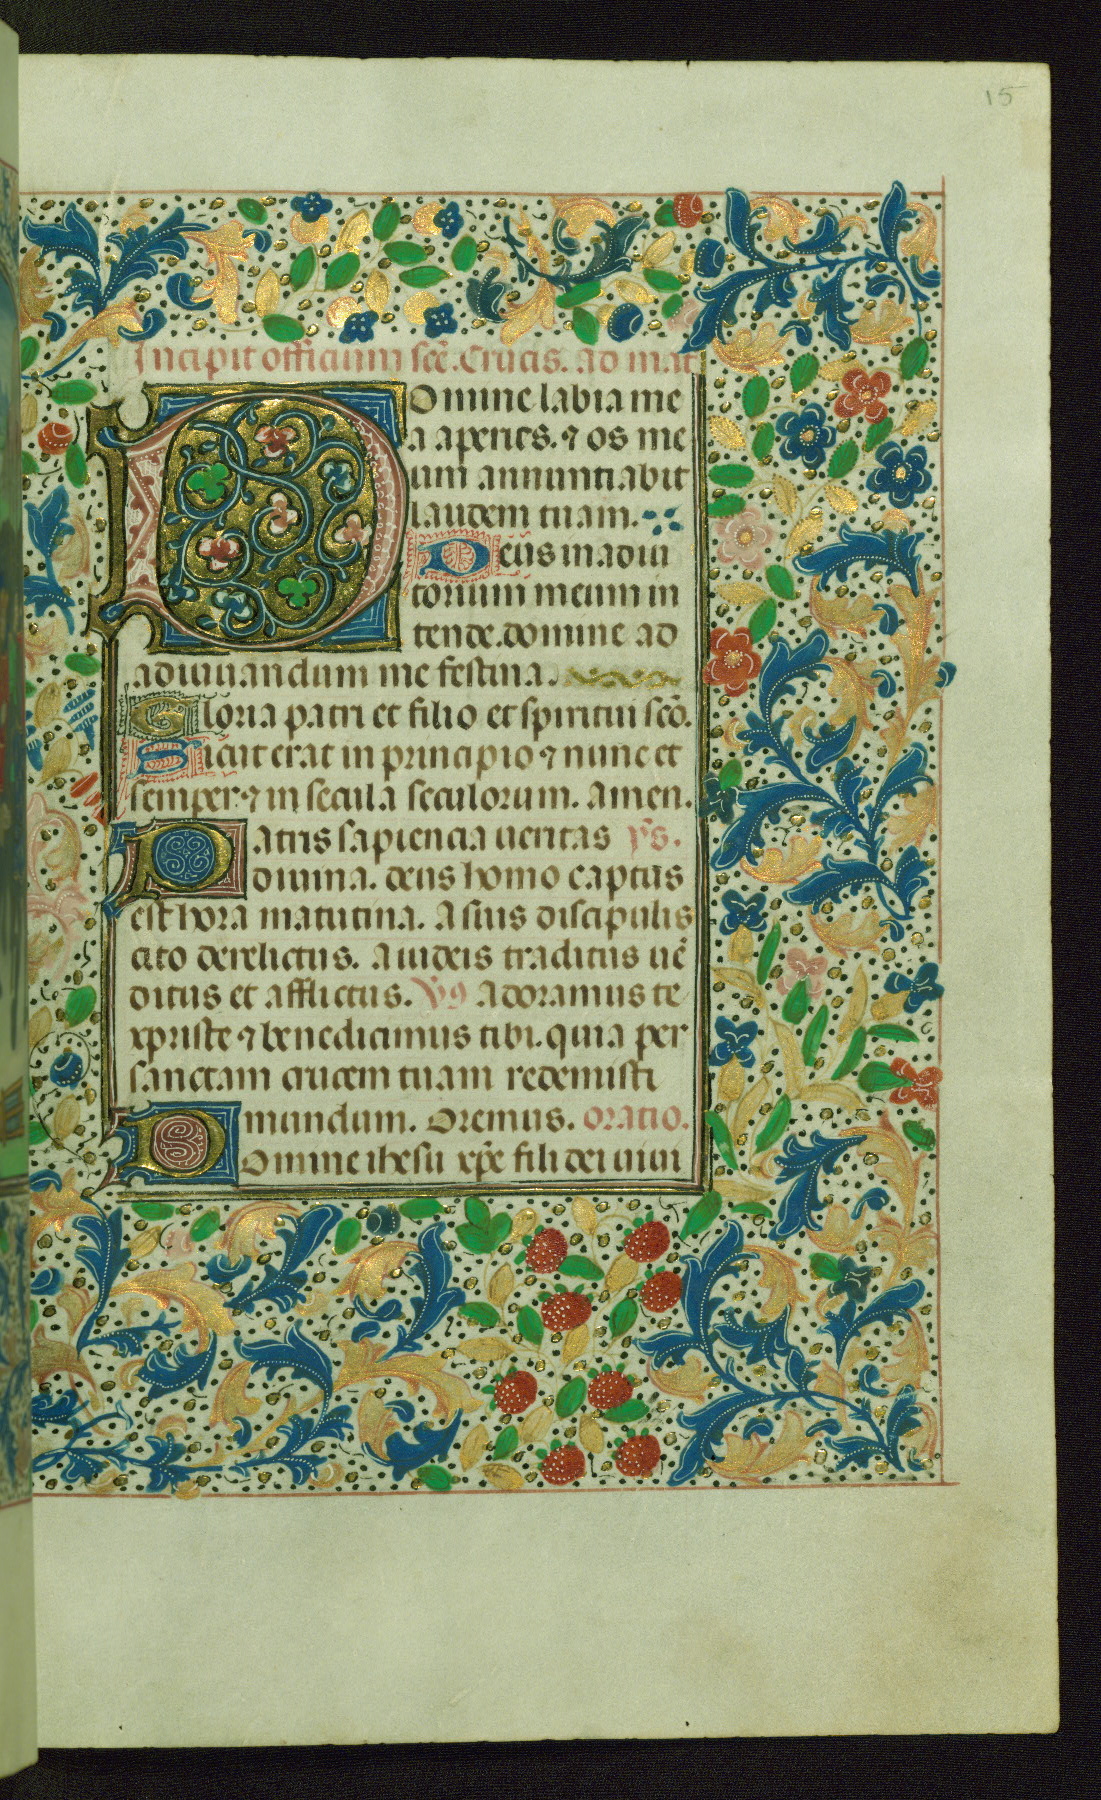 15
Incipit officium scē. Crucis. ad mat
Domine labia me
a aperies. ⁊ os me
um annuntiabit
laudem tuam.
Deus in adiu
torium meum in
tende. domine ad
adiuuandum me festina.
Gloria patri et filio et spiritui scō.
Sicut erat in principio ⁊ nunc et
semper. ⁊ in secula seculorum. Amen.
Patris sapiencia ueritas ỹs.
diuina. deus homo captus
est hora matutina. A suis discipulis
cito derelictus. A iudeis traditus uē
ditus et afflictus. ỹ9 Adoramus te
xpriste ⁊ benedicimus tibi. quia per
sanctam crucem tuam redemisti
mundum. Oremus. oratio.
Domine ihesu xp̄e fili dei uiui